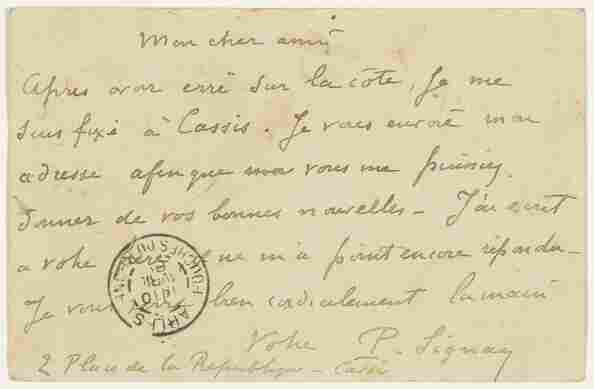 Mon cher ami
Après avoir erré sur la côte, je me
suis fixé à Cassis. Je vous envoie mon
adresse afin que vous me puissiez
donner de vos bonnes nouvelles - J'ai écrit
a votre il ne m'a point encore répondu -
Je vous serre bien cordialement la main
Votre P. Signac
2 Place de la République - Cassis